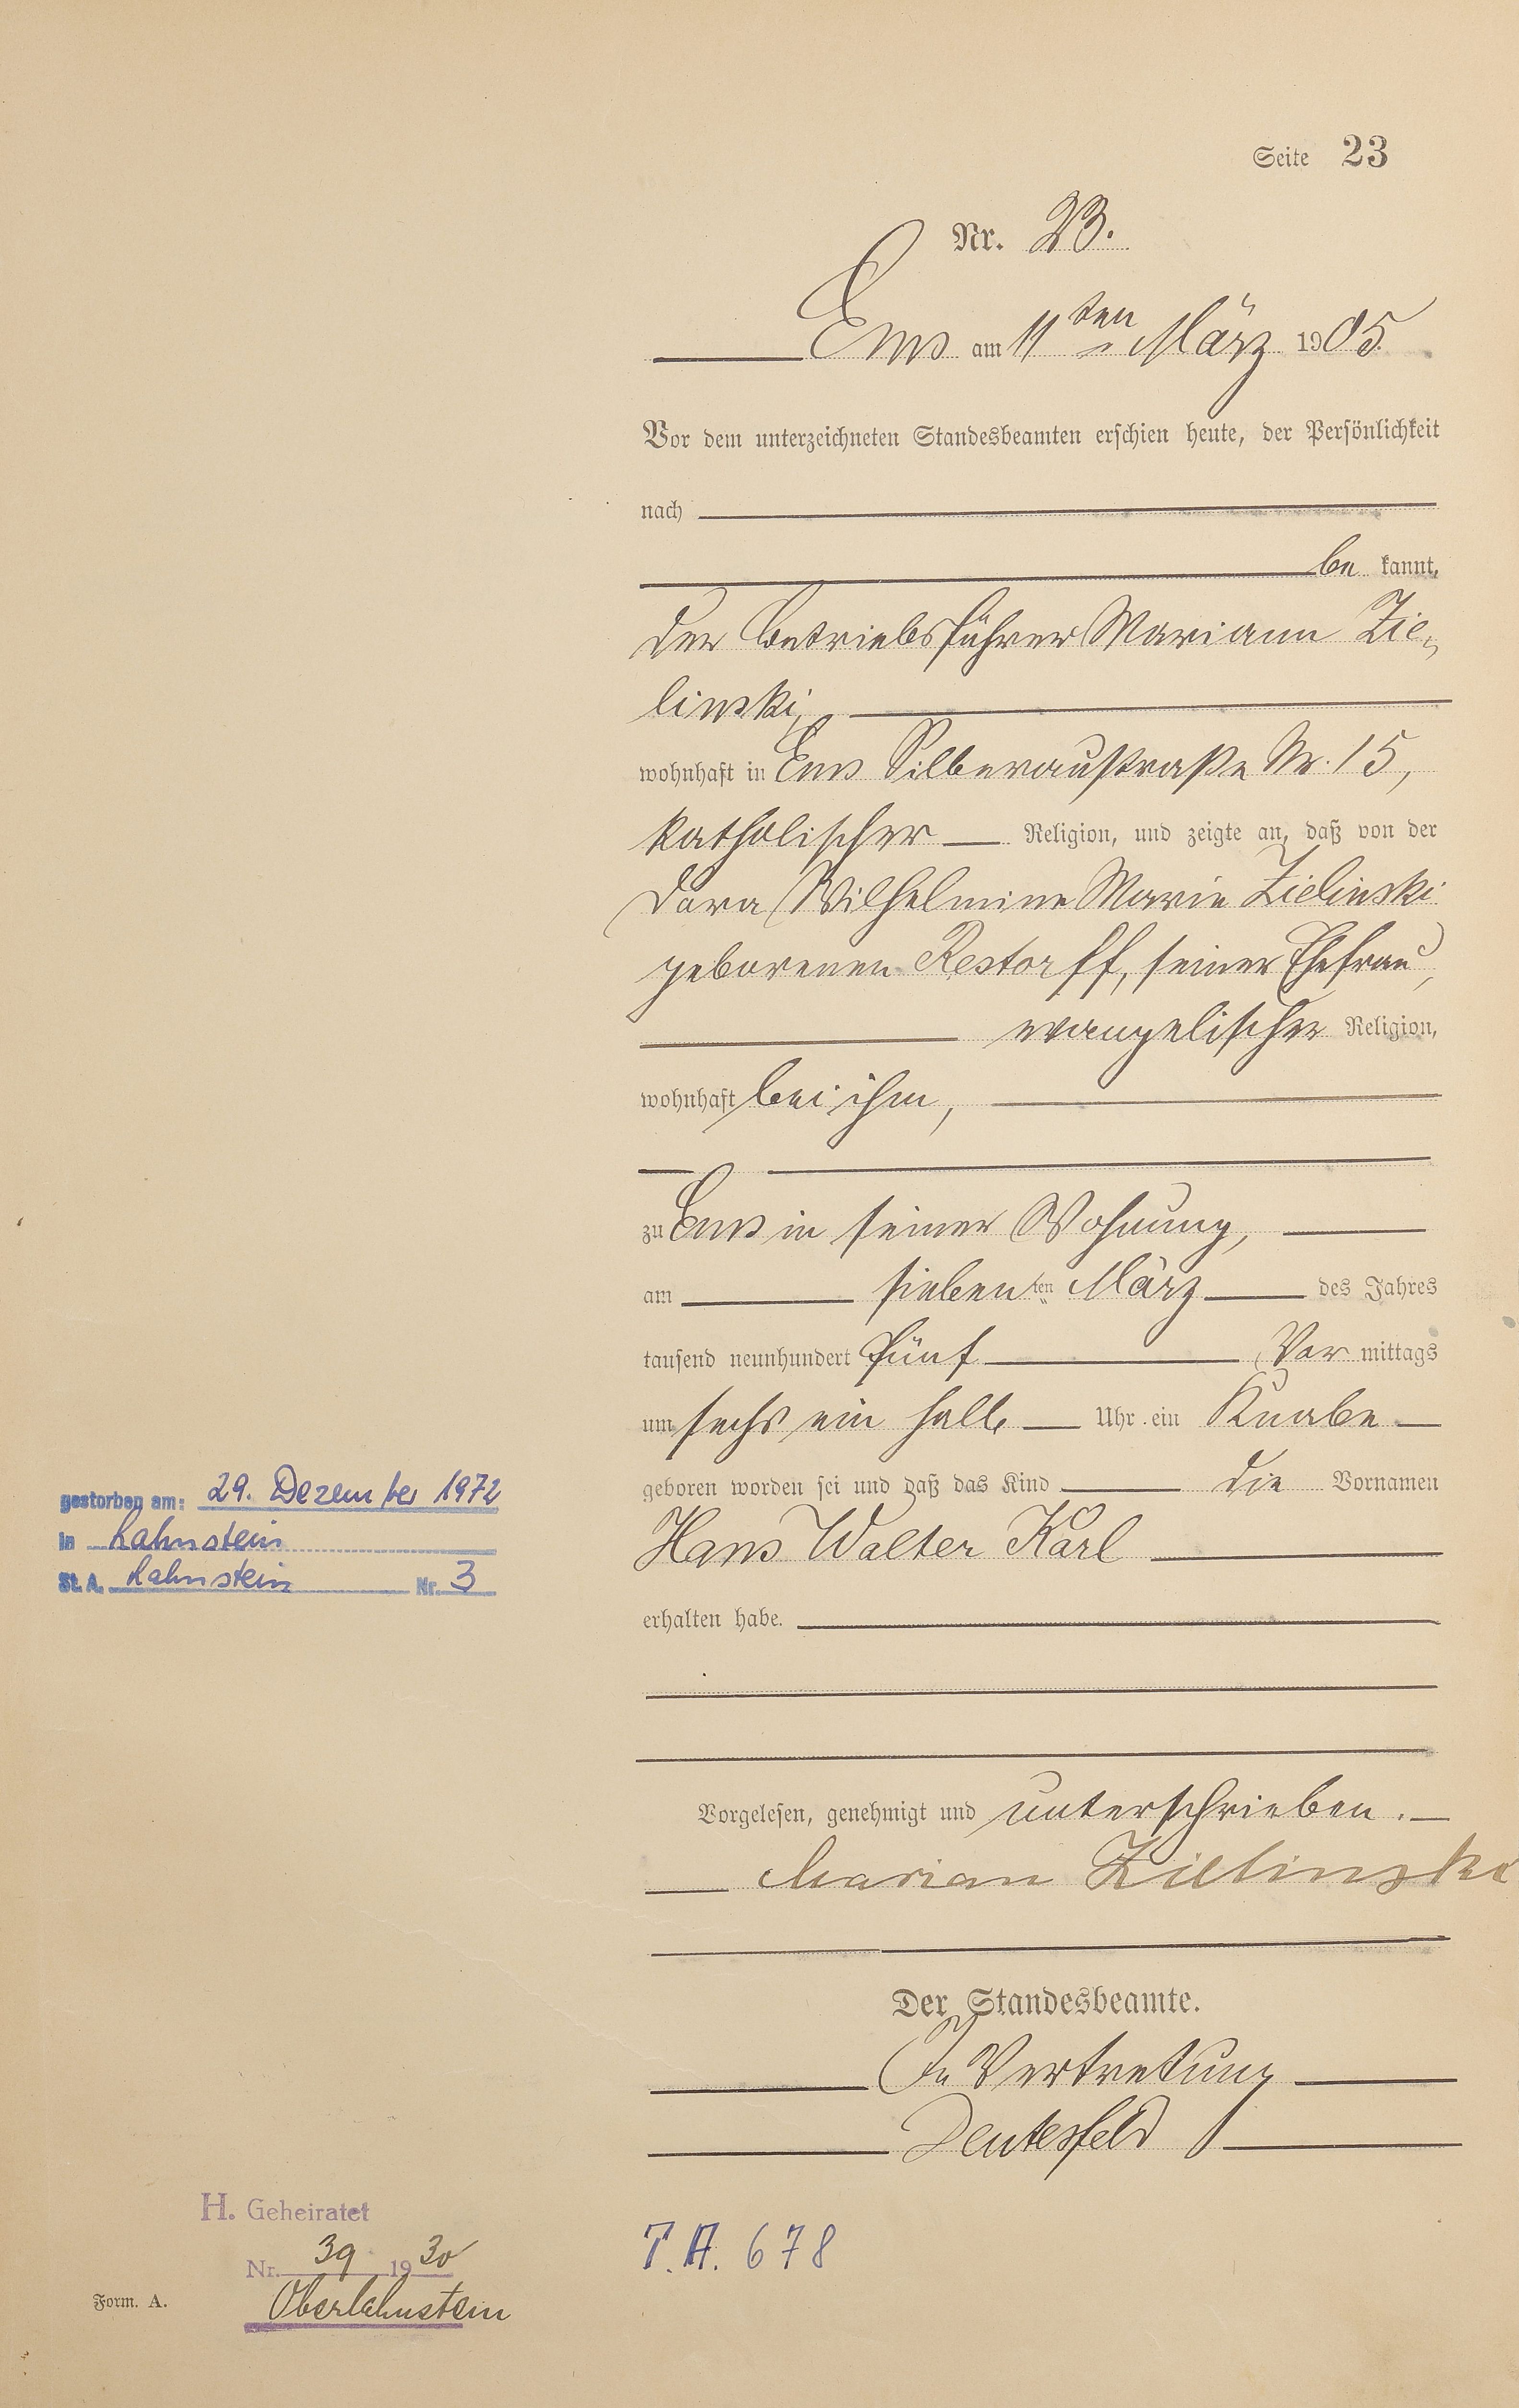 Seite 23
Nr. 23.
Ems am 11ten März 1905.
Vor dem unterzeichneten Standesbeamten erschien heute, der Persönlichkeit
nach
be kannt,
der Betriebsführer Mariann Zie-
linski,
wohnhaft in Ems Silberaustraße Nr. 15,
katholischer Religion, und zeigte an, daß von der
Dora Wilhelmine Marie Zielinski
geborenen Restorff, seiner Ehefrau,
evangelischer Religion,
wohnhaft bei ihm,
zu Ems in seiner Wohnung,
am siebenten März des Jahres
tausend neunhundert fünf Vor mittags
um sechs ein halb Uhr ein Knabe
geboren worden sei und daß das Kind die Vornamen
Hans Walter Karl
erhalten habe.
Vorgelesen, genehmigt und unterschrieben.
Marian Zielinski
Der Standesbeamte.
In Vertretung
Deutesfeld
gestorben am: 29. Dezember 1972
in Lahnstein
St. A. Lahnstein Nr. 3
H. Geheiratet
Nr. 39 1930
Oberlahnstein
T.A. 678
Form. A.